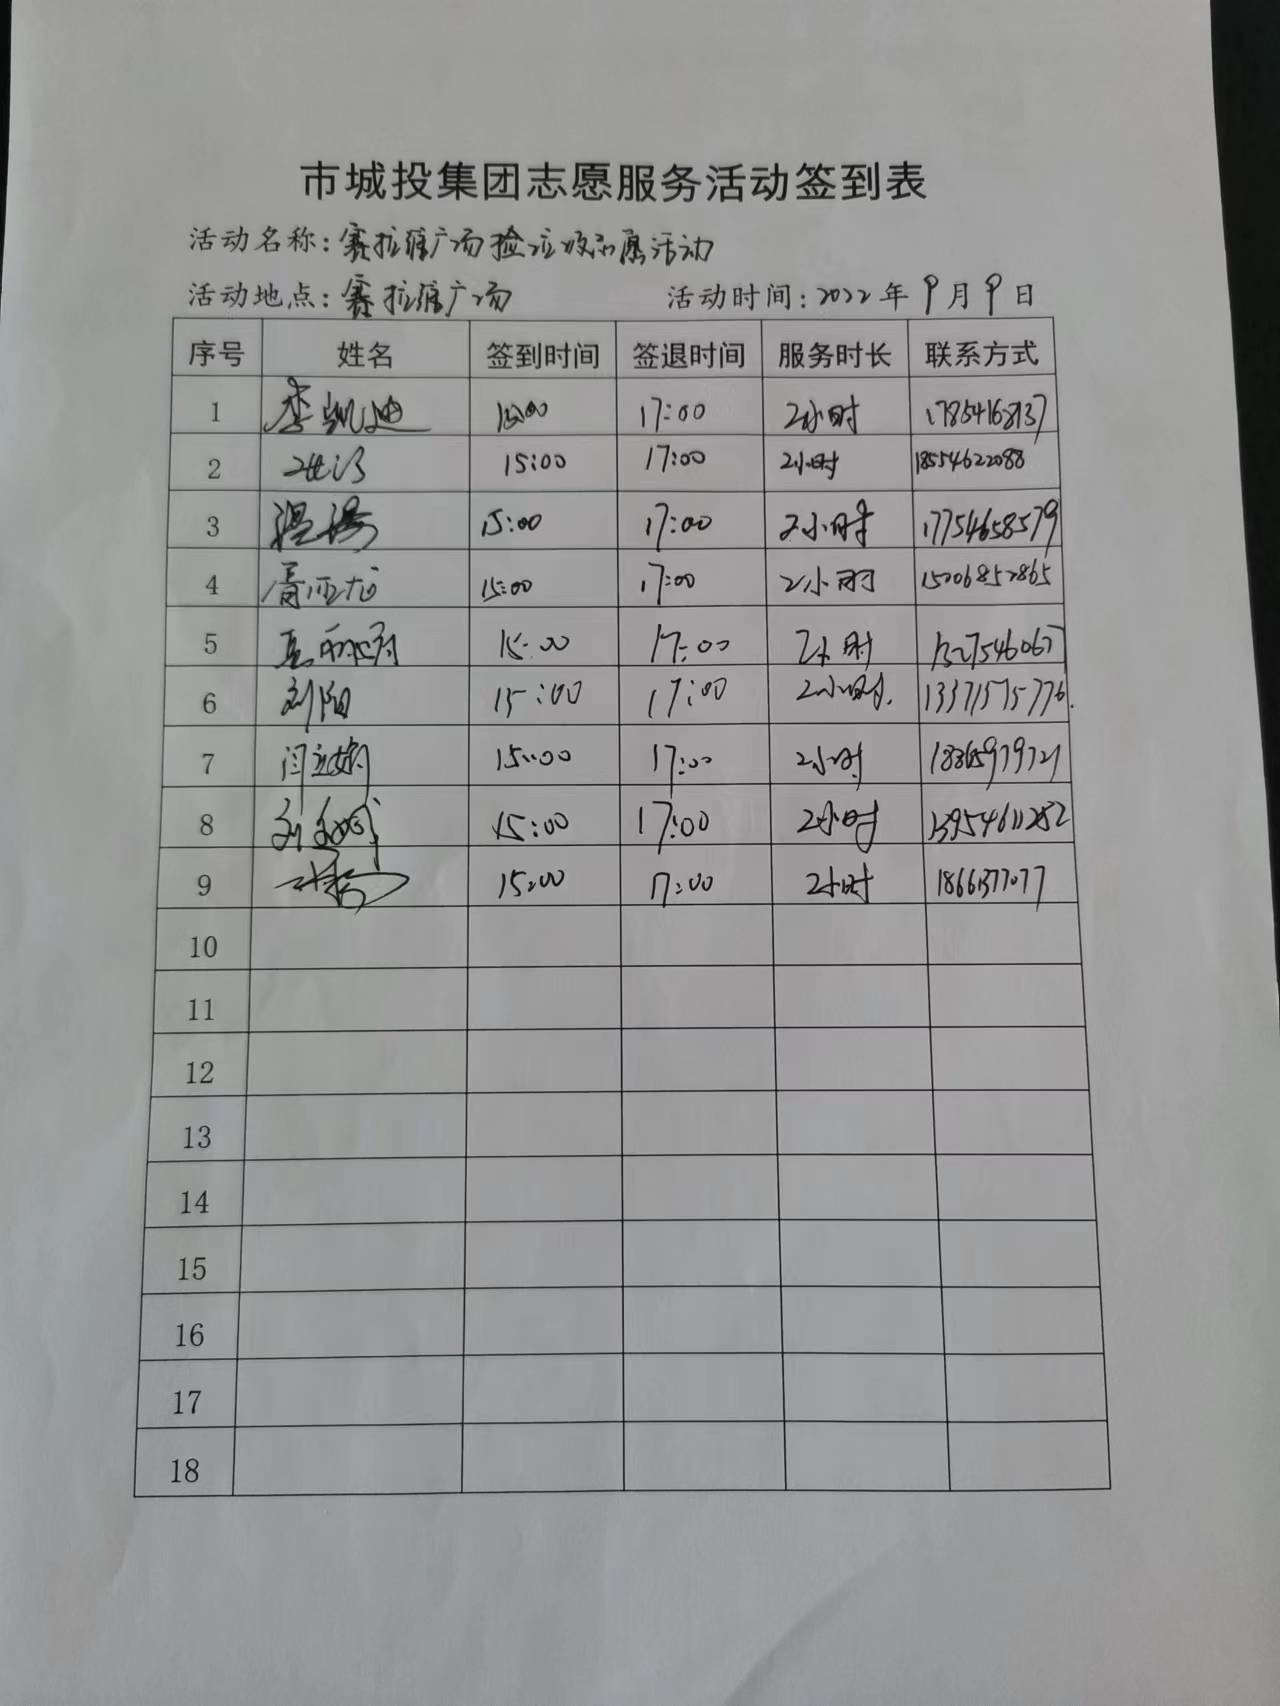 市城投集团志愿服务活动签到表
活动名称:赛拉维广场捡垃圾志愿活动
活动地点:赛拉维广场 活动时间:2022年9月9日
序号 姓名 签到时间 签退时间 服务时长 联系方式
1 李凯迪 15:00 17:00 2小时 17854168137
2 15:00 17:00 2小时 18554622088
3 温扬 15:00 17:00 2小时 17754658579
4 15:00 17:00 2小时 15206852865
5 15:00 17:00 2小时
6 刘阳 15:00 17:00 2小时. 13371575776.
7 15:00 17:00 2小时 18865979721
8 15:00 17:00 2小时 13954611282
9 15:00 17:00 2小时
10
11
12
13
14
15
16
17
18